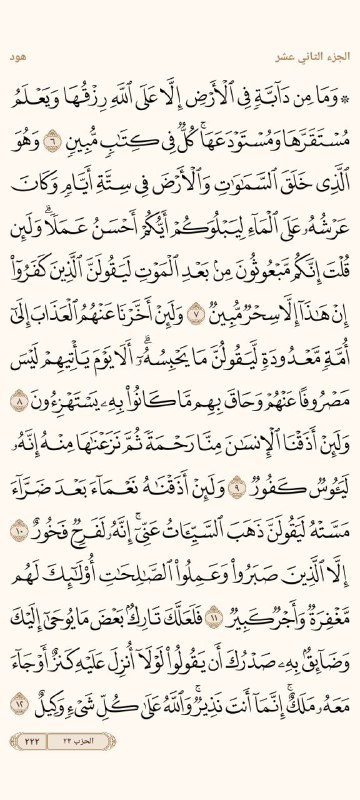 الجزء الثاني عشر هود
۞ وَمَا مِن دَآبَّةٍ فِي ٱلْأَرْضِ إِلَّا عَلَى ٱللَّهِ رِزْقُهَا وَيَعْلَمُ
مُسْتَقَرَّهَا وَمُسْتَوْدَعَهَاۚ كُلٌّ فِي كِتَٰبٍ مُّبِينٍ ٦ وَهُوَ
ٱلَّذِي خَلَقَ ٱلسَّمَٰوَٰتِ وَٱلْأَرْضَ فِي سِتَّةِ أَيَّامٍ وَكَانَ
عَرْشُهُۥ عَلَى ٱلْمَآءِ لِيَبْلُوَكُمْ أَيُّكُمْ أَحْسَنُ عَمَلًاۗ وَلَئِن
قُلْتَ إِنَّكُم مَّبْعُوثُونَ مِنۢ بَعْدِ ٱلْمَوْتِ لَيَقُولَنَّ ٱلَّذِينَ كَفَرُوٓاْ
إِنْ هَٰذَآ إِلَّا سِحْرٌ مُّبِينٌ ٧ وَلَئِنْ أَخَّرْنَا عَنْهُمُ ٱلْعَذَابَ إِلَىٰٓ
أُمَّةٍ مَّعْدُودَةٍ لَّيَقُولُنَّ مَا يَحْبِسُهُۥٓۗ أَلَا يَوْمَ يَأْتِيهِمْ لَيْسَ
مَصْرُوفًا عَنْهُمْ وَحَاقَ بِهِم مَّا كَانُواْ بِهِۦ يَسْتَهْزِءُونَ ٨
وَلَئِنْ أَذَقْنَا ٱلْإِنسَٰنَ مِنَّا رَحْمَةً ثُمَّ نَزَعْنَٰهَا مِنْهُ إِنَّهُۥ
لَيَـُٔوسٌ كَفُورٌ ٩ وَلَئِنْ أَذَقْنَٰهُ نَعْمَآءَ بَعْدَ ضَرَّآءَ
مَسَّتْهُ لَيَقُولَنَّ ذَهَبَ ٱلسَّيِّـَٔاتُ عَنِّيٓۚ إِنَّهُۥ لَفَرِحٌ فَخُورٌ ١٠
إِلَّا ٱلَّذِينَ صَبَرُواْ وَعَمِلُواْ ٱلصَّٰلِحَٰتِ أُوْلَٰٓئِكَ لَهُم
مَّغْفِرَةٌ وَأَجْرٌ كَبِيرٌ ١١ فَلَعَلَّكَ تَارِكٌۢ بَعْضَ مَا يُوحَىٰٓ إِلَيْكَ
وَضَآئِقٌۢ بِهِۦ صَدْرُكَ أَن يَقُولُواْ لَوْلَآ أُنزِلَ عَلَيْهِ كَنزٌ أَوْ جَآءَ
مَعَهُۥ مَلَكٌۚ إِنَّمَآ أَنتَ نَذِيرٌۚ وَٱللَّهُ عَلَىٰ كُلِّ شَيْءٍ وَكِيلٌ ١٢
٢٢٢ الحزب ٢٣